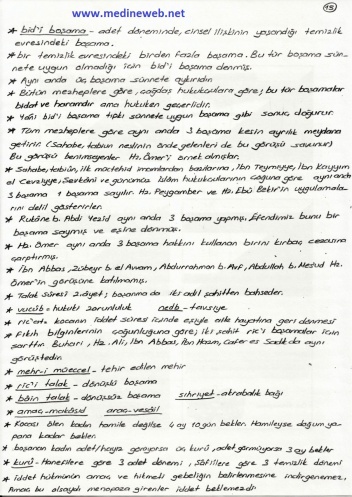 www.medineweb.net
15
* bid'i boşama - adet döneminde, cinsel ilişkinin yaşandığı temizlik
evresindeki boşama.
* bir temizlik evresindeki birden fazla boşama. Bu tür boşama sün-
nete uygun olmadığı için bid'i boşama denmiş.
* Aynı anda üç boşama sünnete aykırıdır.
* Bütün mezheplere göre, çağdaş hukukculara göre; bu tür boşamalar
bidat ve haramdır ama hukuken geçerlidir.
* Yani bid'i boşama tıpkı sünnete uygun boşama gibi sonuç doğurur.
* Tüm mezheplere göre aynı anda 3 boşama kesin ayrılık meydana
getirir. (Sahabe, tabiun neslinin önde gelenleri de bu görüşü savunur)
Bu görüşü benimseyenler Hz. Ömer'i örnek almışlar.
* Sahabe, tabiün, ilk müctehid imamlardan bazılarına, ibn Teymiyye, ibn Kayyım
el Cevziyye, Şevkani ve günümüz islam hukukcularının çoğuna göre aynı anda
3 boşama 1 boşama sayılır. Hz. Peygamber ve Hz. Ebu Bekir'in uygulamala-
rını delil gösterirler.
* Rukane b. Abdi Yezid aynı anda 3 boşama yapmış, Efendimiz bunu bir
boşama saymış ve eşine dönmüş.
* Hz. Ömer aynı anda 3 boşama hakkını kullanan birini kırbaç cezasına
çarptırmış.
* İbn Abbas, Zübeyr b. el Avvam, Abdurrahman b. Avf, Abdullah b. Mesud Hz.
Ömer'in görüşüne katılmamış.
* Talak Süresi 2. ayet; boşanmada iki adil şahitten bahseder.
* vücüb = hukuki zorunluluk nedb - tavsiye.
* ric'at = kocanın iddet süresi içinde eşiyle aile hayatına geri dönmesi
* Fıkıh bilginlerinin çoğunluğuna göre; iki şahit ric'i boşamalar için
şarttır. Buhari, Hz. Ali, İbn Abbas, İbn Hazm, Cafer es Sadık da aynı
görüştedir.
* mehr-i müeccel - tehir edilen mehir
* ric'i talak - dönüşlü boşama
* bâin talak - dönüşsüz boşama sıhriyet - akrabalık bağı
* amaç - makâsıd araç - vesâil
* Kocası ölen kadın hamile değilse 4 ay 10 gün bekler. Hamileyse doğum ya-
pana kadar bekler.
* boşanan kadın adet/hayız görüyorsa üç kurü, adet görmüyorsa 3 ay bekler
* kurü - Hanefilere göre 3 adet dönemi, Şâfiilere göre 3 temizlik dönemi
* iddet hükmünün amaç ve hikmeti gebeliğin belirlenmesine indirgenemez,
Amaç bu olsaydı menopoza girenler iddet beklemezdi.